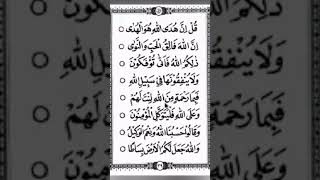 قُلْ اِنَّ هُدَى اللّٰهِ هُوَ الْهُدٰى
اِنَّ اللّٰهَ فَالِقُ الْحَبِّ وَالنَّوٰى
ذٰلِكُمُ اللّٰهُ فَاَنّٰى تُؤْفَكُوْنَ
وَلَا يُنْفِقُوْنَهَا فِيْ سَبِيْلِ اللّٰهِ
فَبِمَا رَحْمَةٍ مِّنَ اللّٰهِ لِنْتَ لَهُمْ
وَعَلَى اللّٰهِ فَلْيَتَوَكَّلِ الْمُؤْمِنُوْنَ
وَقَالُوْا حَسْبُنَا اللّٰهُ وَنِعْمَ الْوَكِيْلُ
وَاللّٰهُ جَعَلَ لَكُمُ الْاَرْضَ بِسَاطًا